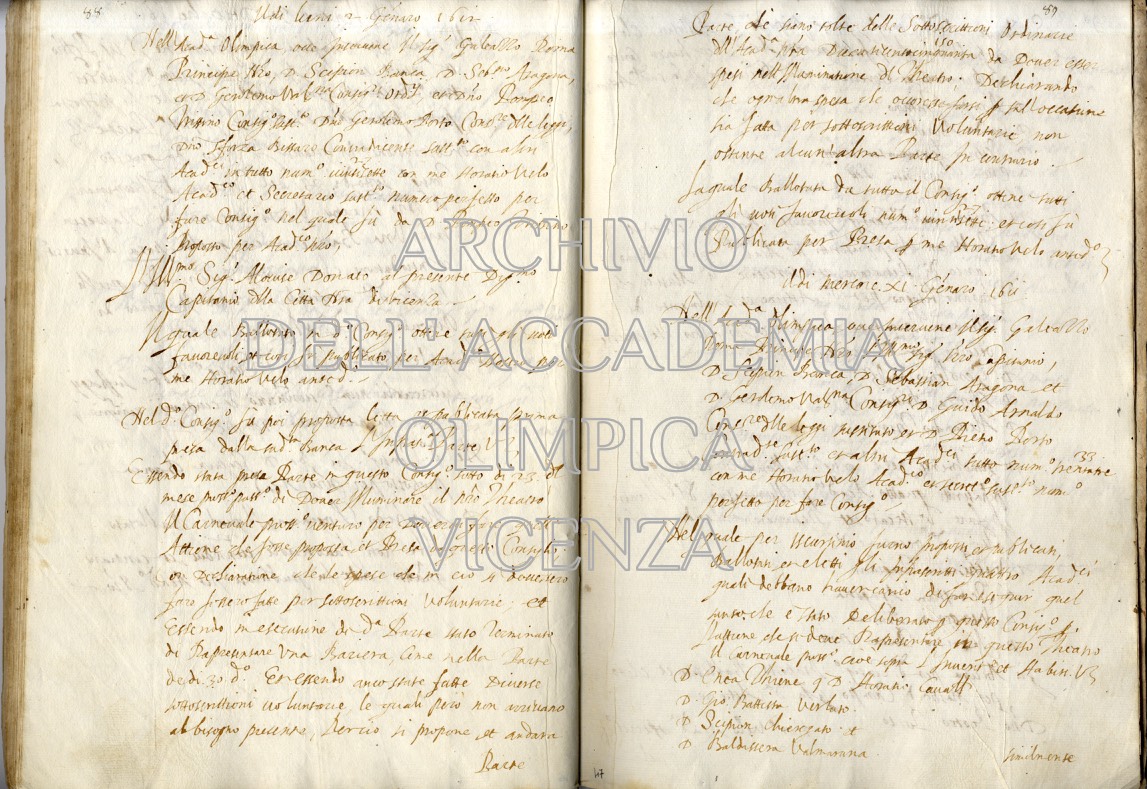 88
Adi luni 2 Genaro 1612
Nell Acad.a Olimpica, ove intervenne Il Sig.r Galeazzo Roma
Principe nro, D. Scipion Banca, D. Seb.no Aragona,
et D. Gerolemo Val.na Consig.ri ord.ri et D. Pompeo
Trissino Consig.o sust.o Dno Gerolemo Porto Cons.re delle leggi,
Dno Sforza Bissaro Contradicente sust.to con altri
Acad.ci in tutto num.o con me Horatio Velo
Acad.co et Secretario sust.o numero perfetto per
fare Consig.o nel quale fu da D. Pompeo Trissino
proposto per Acad.co nro,
L'Ill.mo Sig.r Alouise Donato al presente Dig.mo
Capitanio della Città nra di Vicenza.
Il quale Ballotato in d.o Consig.o ottene tutti gli voti
favorevoli, et così fu publicato per Acad.co per
me Horatio Velo anted.o
Nel d.o Consig.o fu poi proposta letta et publicata prima
presa dalla sud.ta Banca l'Infra.ta Parte. V3.
Essendo stata presa Parte in questo Consig.o sotto di 23. del
mese pross.o pass.o di Dover Illuminare il nro Theatro
Il Carnevale pross.o venturo per
Attione che fosse proposta, et Presa in questo Consiglio,
Con Dechiaratione che le spese che in ciò si dovessero
fare fossero fatte per sottoscrittioni voluntarie, et
Essendo in esecutione di d.a Parte stato Terminato
di Rappresentare Una Bariera, come nella Parte
de di 30 d.o Et essendo anco state fatte Diverse
sottoscrittioni voluntarie le quali però non arrivano
al bisogno presente, Perciò si propone, et andarà
Parte
89
Parte che siano tolte dalle Sottoscrittioni Ordinarie
dell'Acad.a nra Ducati centocinquanta da Dover esser
150
spesi nell'Illuminatione del Theatro. Dechiarando
che ogn'altra spesa che occoresse farsi p tal occasione
sia fatta per sottoscrittioni Voluntarie, non
ostante alcun'altra Parte in contrario.
La quale Ballotata da tutto il Consig.o ottene tutti
gli voti favorevoli num.o et così fu
Publicata per Presa p me Horatio Velo anted.o
Adi Mercore XI Genaro 1612
Nell'Acad.a Olimpica, ove intervenne Il Sig.r Galeazzo
Roma Principe nro, Ill.mo Sig.r Capitanio,
D. Scipion Banca, D. Sebastian Aragona et
D. Gerolemo Val.na Consig.ri D. Guido Arnaldo
Cons.re delle leggi sustituto et D. Pietro Porto
Contrad.te sust.to et altri Acad.ci tutto num.o trentatre
33
con me Horatio Velo Acad.co et secret.o sust.to num.o
perfetto per fare Consig.o
Nel quale per scrutinio furno proposti et publicati,
Ballotati, et eletti gli Infrascritti quatro Acad.ci
quali debbano haver carico di
tanto che è stato Deliberato p questo Consig.o p.
l'attione che si deve Rappresentare in questo Theatro
Il Carnevale pross.o cioè sopra l'Invent.e et Habiti. V3
D. Enea Thiene q. D. Horatio Cavall.r
D. Gio. Battista Verlato
D. Scipion Chieregato et
D. Baldissera Valmarana
similmente
47
ARCHIVIO
DELL'ACCADEMIA
OLIMPICA
VICENZA